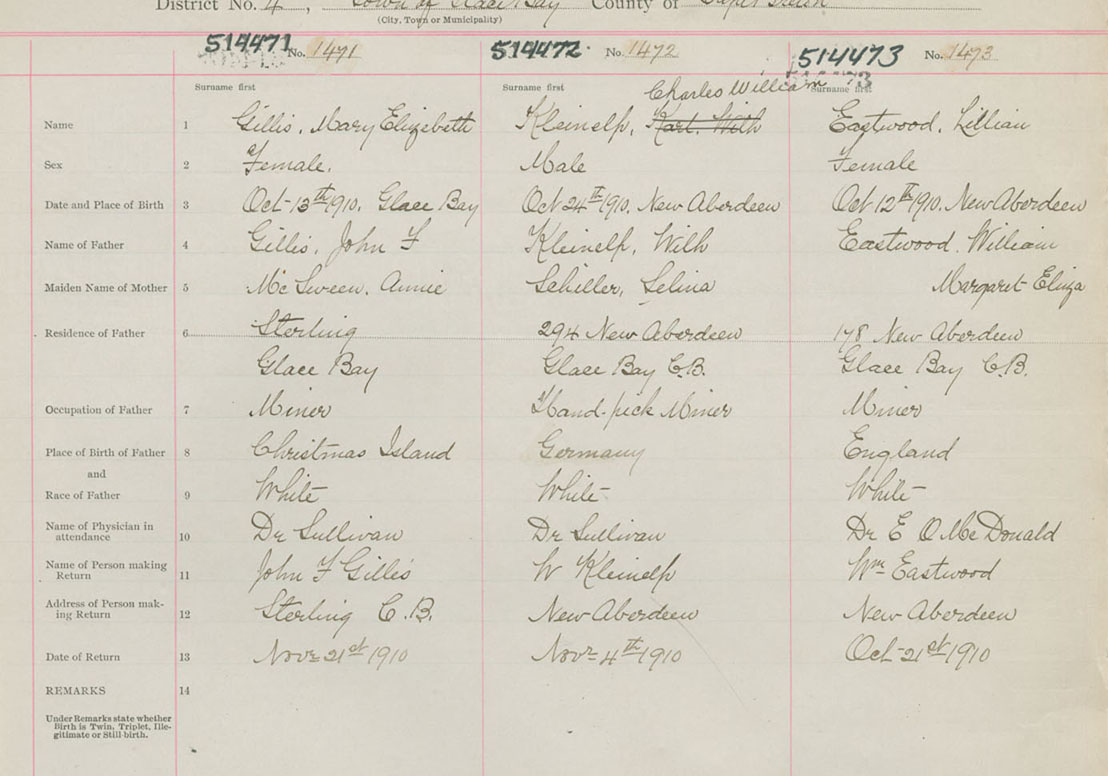 District No. 4, Town of Glace Bay County of Cape Breton
(City, Town or Municipality)
514471 No. 1471 514472 No. 1472 514473 No. 1473
Surname first Surname first Surname first
Charles William
Name 1 Gillis, Mary Elizebeth Kleinelp, Karl. Wilh Eastwood, Lillian
Sex 2 Female. Male Female
Date and Place of Birth 3 Oct-13th 1910. Glace Bay Oct 24th 1910. New Aberdeen Oct 12th 1910. New Aberdeen
Name of Father 4 Gillis, John F Kleinelp, Wilh Eastwood, William
Maiden Name of Mother 5 McSween, Annie Schiller, Selina Margaret Eliza
Residence of Father 6 Sterling 294 New Aberdeen 178 New Aberdeen
Glace Bay Glace Bay C.B. Glace Bay C.B.
Occupation of Father 7 Miner Hand-pick Miner Miner
Place of Birth of Father 8 Christmas Island Germany England
and
Race of Father 9 White White White
Name of Physician in
attendance 10 Dr Sullivan Dr Sullivan Dr E O McDonald
Name of Person making
Return 11 John F Gillis W Kleinelp Wm Eastwood
Address of Person mak-
ing Return 12 Sterling C.B. New Aberdeen New Aberdeen
Date of Return 13 Novr 21st 1910 Novr 4th 1910 Oct-21st 1910
REMARKS 14
Under Remarks state whether
Birth is Twin, Triplet, Ille-
gitimate or Still-birth.